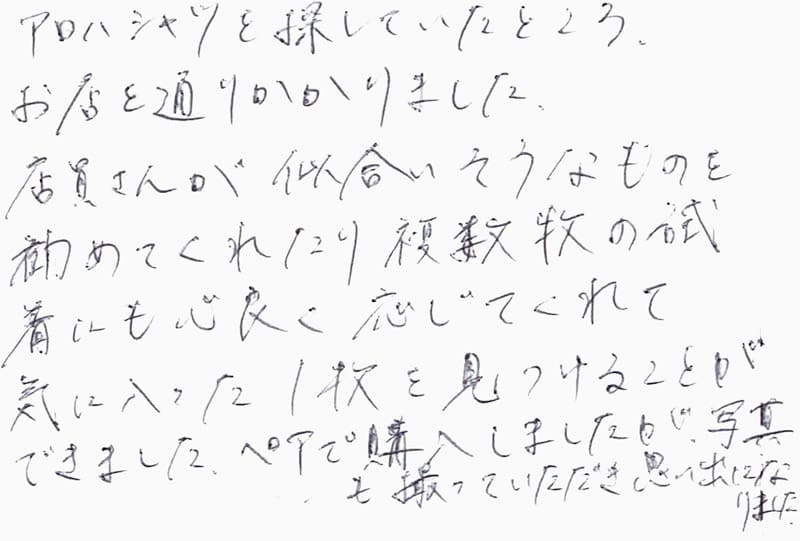 アロハシャツを探していたところ、
お店を通りかかりました。
店員さんが似合いそうなものを
勧めてくれたり複数枚の試
着にも心良く応じてくれて
気に入った1枚を見つけることが
できました。ペアで購入しましたが、写真
も撮っていただき思い出にな
りました